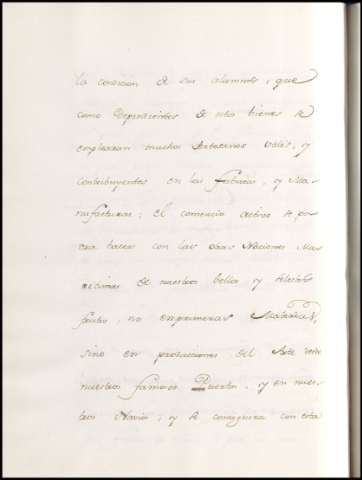 la concicion de sus alumnos, que
como dependientes de estos bienes se
emplearan muchos vales, y
contribuyentes en las fabricas, y Ma-
nufacturas; el comercio activo se po-
dra hacer con las otras Naciones Ma-
ritimas de nuestros bellos, y
frutos, no en primeras Materias,
sino en producciones del Arte
nuestros famosos Puertos, y en nues-
tros Navios; y se conseguira con esta